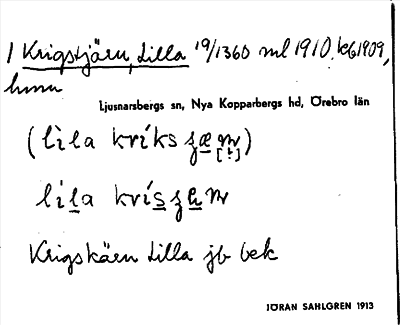 1 Krigstjärn, Lilla 19/1360 ml 1910, k61909,
hmn
Ljusnarsbergs sn, Nya Kopparbergs hd, Örebro län
(lìla kríks
lila krís
Krigskärn Lilla jb bek
JÖRAN SAHLGREN 1913